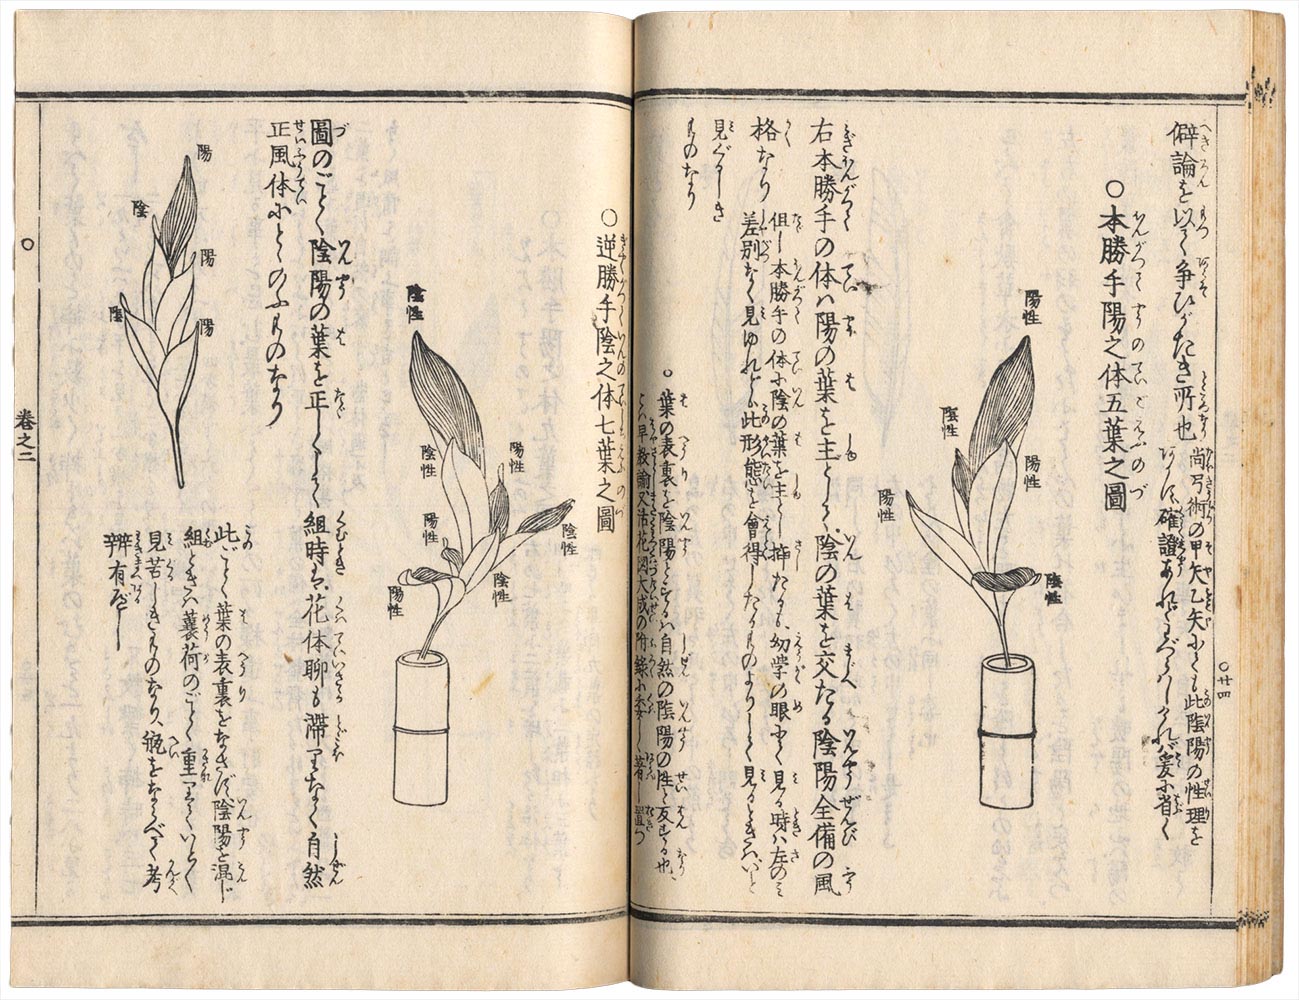 僻論を以て争ひがたき所也
尚弓術の甲矢乙矢にも此陰陽の性理を
確證あれども
爰に省く
○本勝手陽之体五葉之圖
陽性
陰性
陽性
陽性
陰性
右本勝手の体ハ陽の葉を主として陰の葉を交たる陰陽全備の風
格なり
但し本勝手の体に陰の葉を主とし挿たるも幼学の眼にて見る時ハ左のミ
差別なく見ゆれども此形態を會得したるものよりして見るときハ
見ぐるしき
ものなり
○葉の表裏を陰陽とするハ自然の陰陽の性と反する也
○廿四
○逆勝手陰之体七葉之圖
陰性
陰性
陽性
陰性
陽性
陰性
陽性
圖のごとく陰陽の葉を正しくして組時ハ花体聊も滞りなく自然
正風体にとゝのふものなり
陽
陰
陽
陰
陽
此ごとく葉の表裏をなさず陰陽を混じ
組ときハ蘘荷のごとく重りて
見苦しきものなり、瓶をならべて考
辨有べし
卷之二